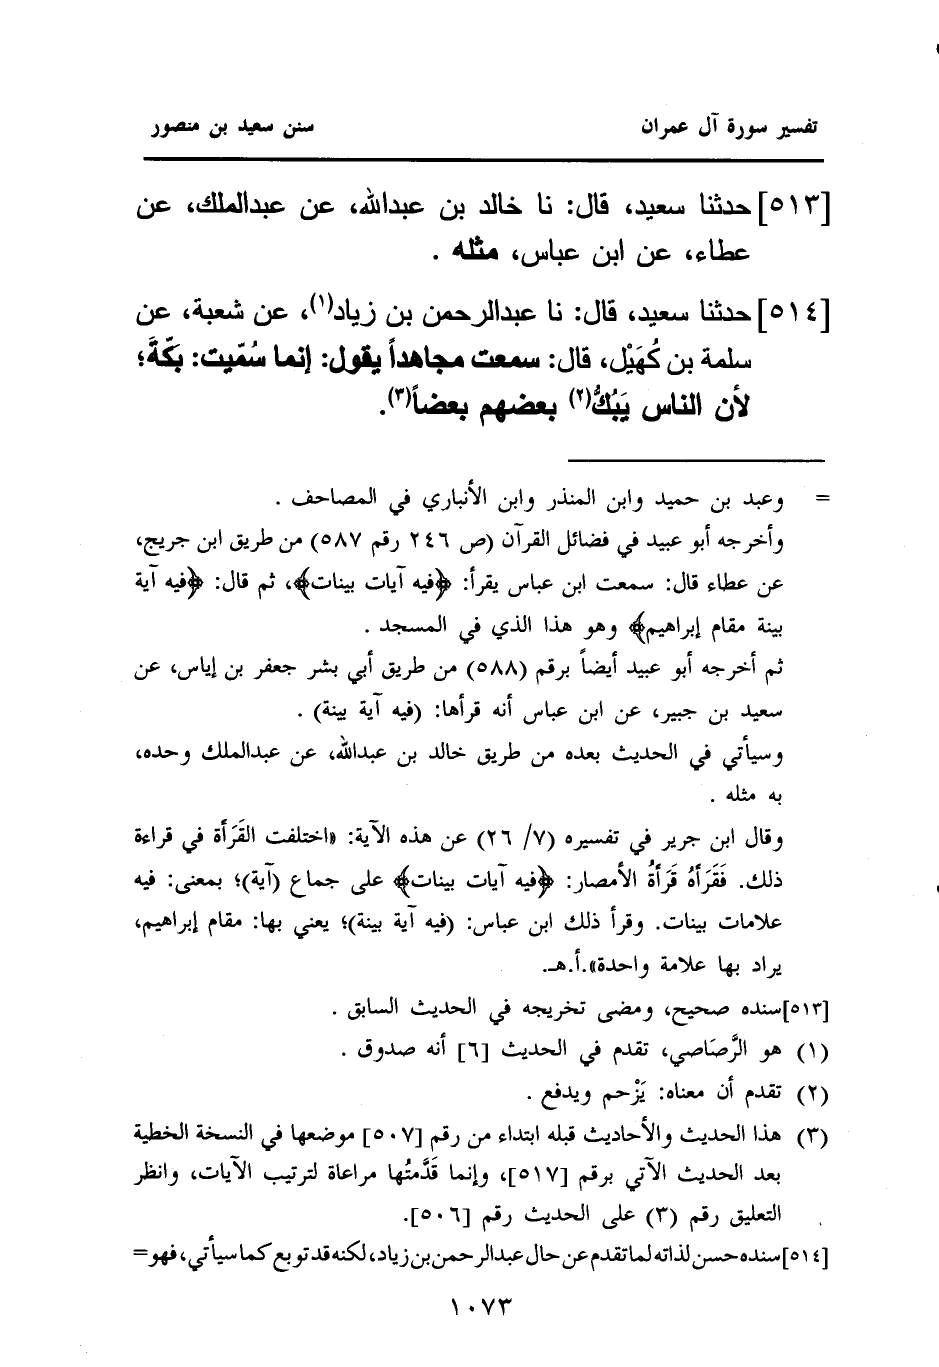 تفسير سورة آل عمران سنن سعيد بن منصور
[٥١٣] حدثنا سعيد، قال: نا خالد بن عبدالله، عن عبدالملك، عن
عطاء، عن ابن عباس، مثله .
[٥١٤] حدثنا سعيد، قال: نا عبدالرحمن بن زياد(١)، عن شعبة، عن
سلمة بن كُهَيْل، قال: سمعت مجاهداً يقول: إنما سُمّيت: بكّةَ؛
لأن الناس يَبُكُّ(٢) بعضهم بعضاً(٣).
= وعبد بن حميد وابن المنذر وابن الأنباري في المصاحف .
وأخرجه أبو عبيد في فضائل القرآن (ص ٢٤٦ رقم ٥٨٧) من طريق ابن جريج،
عن عطاء قال: سمعت ابن عباس يقرأ: ﴿فيه آيات بينات﴾، ثم قال: ﴿فيه آية
بينة مقام إبراهيم﴾ وهو هذا الذي في المسجد .
ثم أخرجه أبو عبيد أيضاً برقم (٥٨٨) من طريق أبي بشر جعفر بن إياس، عن
سعيد بن جبير، عن ابن عباس أنه قرأها: (فيه آية بينة) .
وسيأتي في الحديث بعده من طريق خالد بن عبدالله، عن عبدالملك وحده،
به مثله .
وقال ابن جرير في تفسيره (٧/ ٢٦) عن هذه الآية: «اختلفت القَرَأة في قراءة
ذلك. فَقَرَأهُ قَرَأةُ الأمصار: ﴿فيه آيات بينات﴾ على جماع (آية)؛ بمعنى: فيه
علامات بينات. وقرأ ذلك ابن عباس: (فيه آية بينة)؛ يعني بها: مقام إبراهيم،
يراد بها علامة واحدة».أ.هـ.
[٥١٣] سنده صحيح، ومضى تخريجه في الحديث السابق .
(١) هو الرَّصَاصي، تقدم في الحديث [٦] أنه صدوق .
(٢) تقدم أن معناه: يَزْحم ويدفع .
(٣) هذا الحديث والأحاديث قبله ابتداء من رقم [٥٠٧] موضعها في النسخة الخطية
بعد الحديث الآتي برقم [٥١٧]، وإنما قَدَّمتُها مراعاة لترتيب الآيات، وانظر
التعليق رقم (٣) على الحديث رقم [٥٠٦].
[٥١٤] سنده حسن لذاته لما تقدم عن حال عبدالرحمن بن زياد، لكنه قد توبع كما سيأتي، فهو=
١٠٧٣